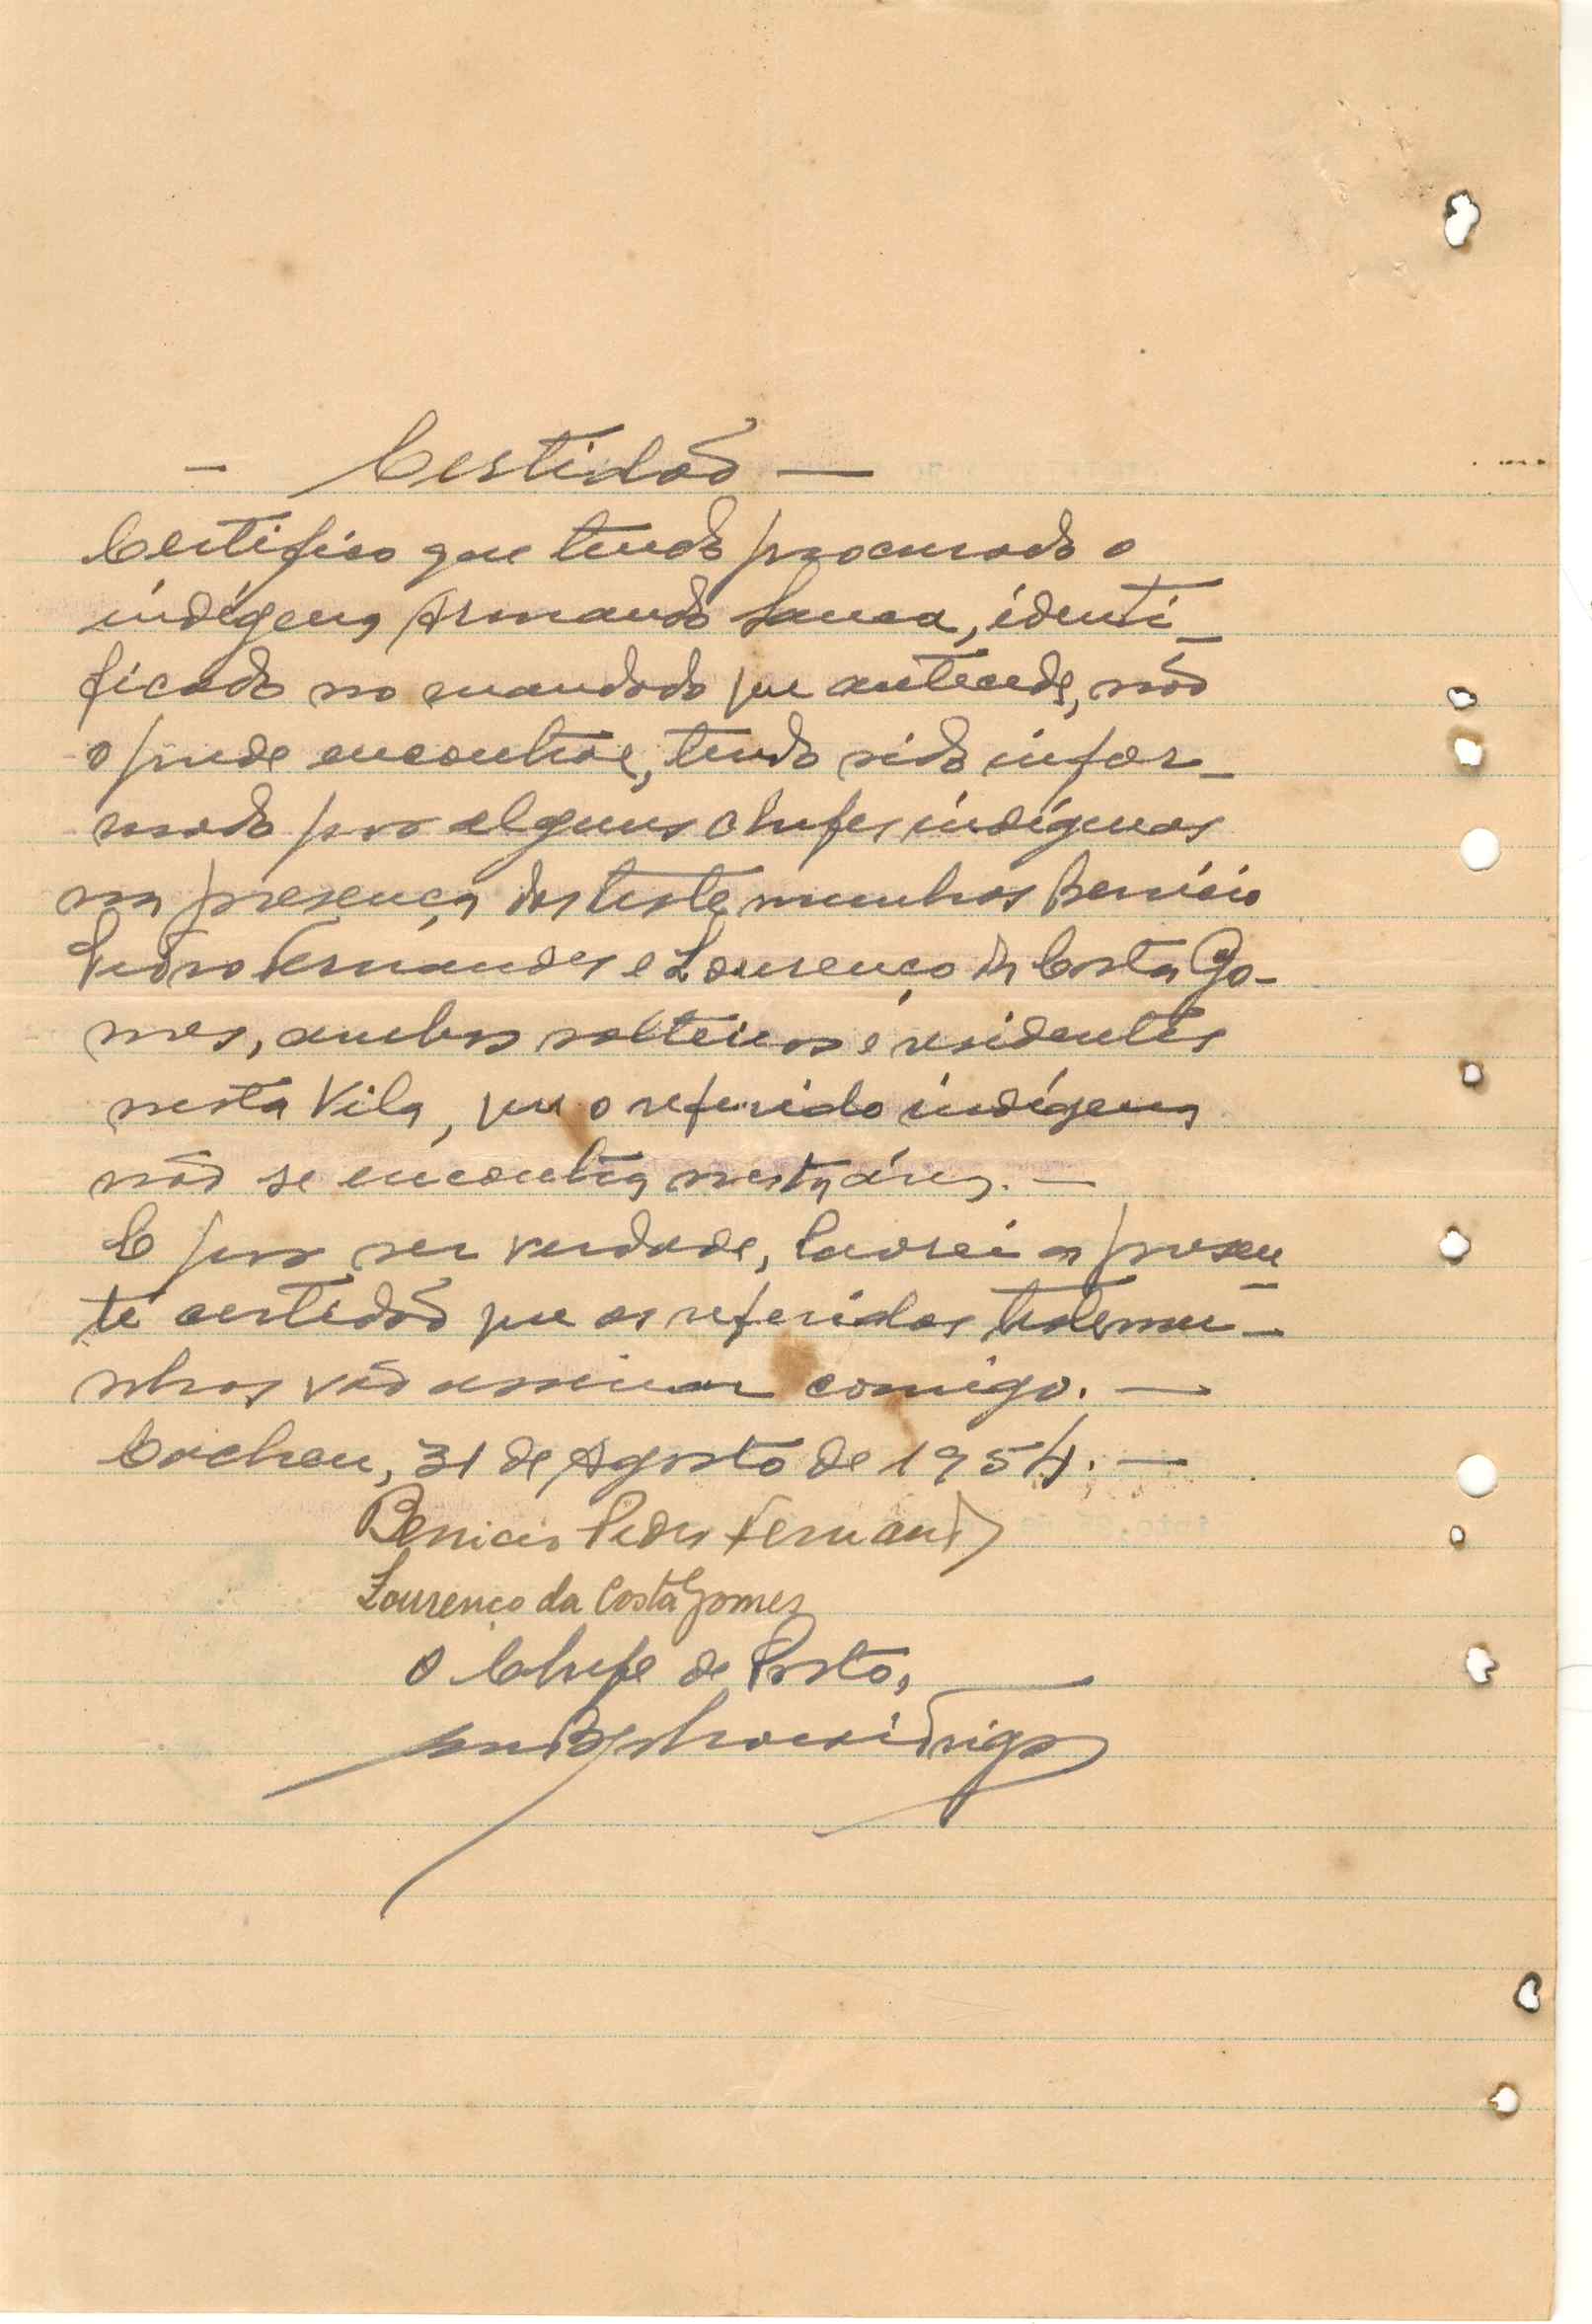 — Certidão —
Certifico que tendo procurado o
indígena Armando Sanca, identi-
ficado no mandado que antecede, não
o pude encontrar, tendo sido infor-
mado por alguns chefes indígenas
na presença das testemunhas Benício
Pedro Fernandes e Lourenço da Costa Go-
mes, ambos solteiros e residentes
nesta Vila, que o referido indígena
não se encontra nesta área. —
E por ser verdade, lavrei a presen-
te certidão que as referidas testemu-
nhas vão assinar comigo. —
Cacheu, 31 de Agosto de 1954. —
Benicio Pedro Fernandes
Lourenço da Costa Gomes
O Chefe de Posto,